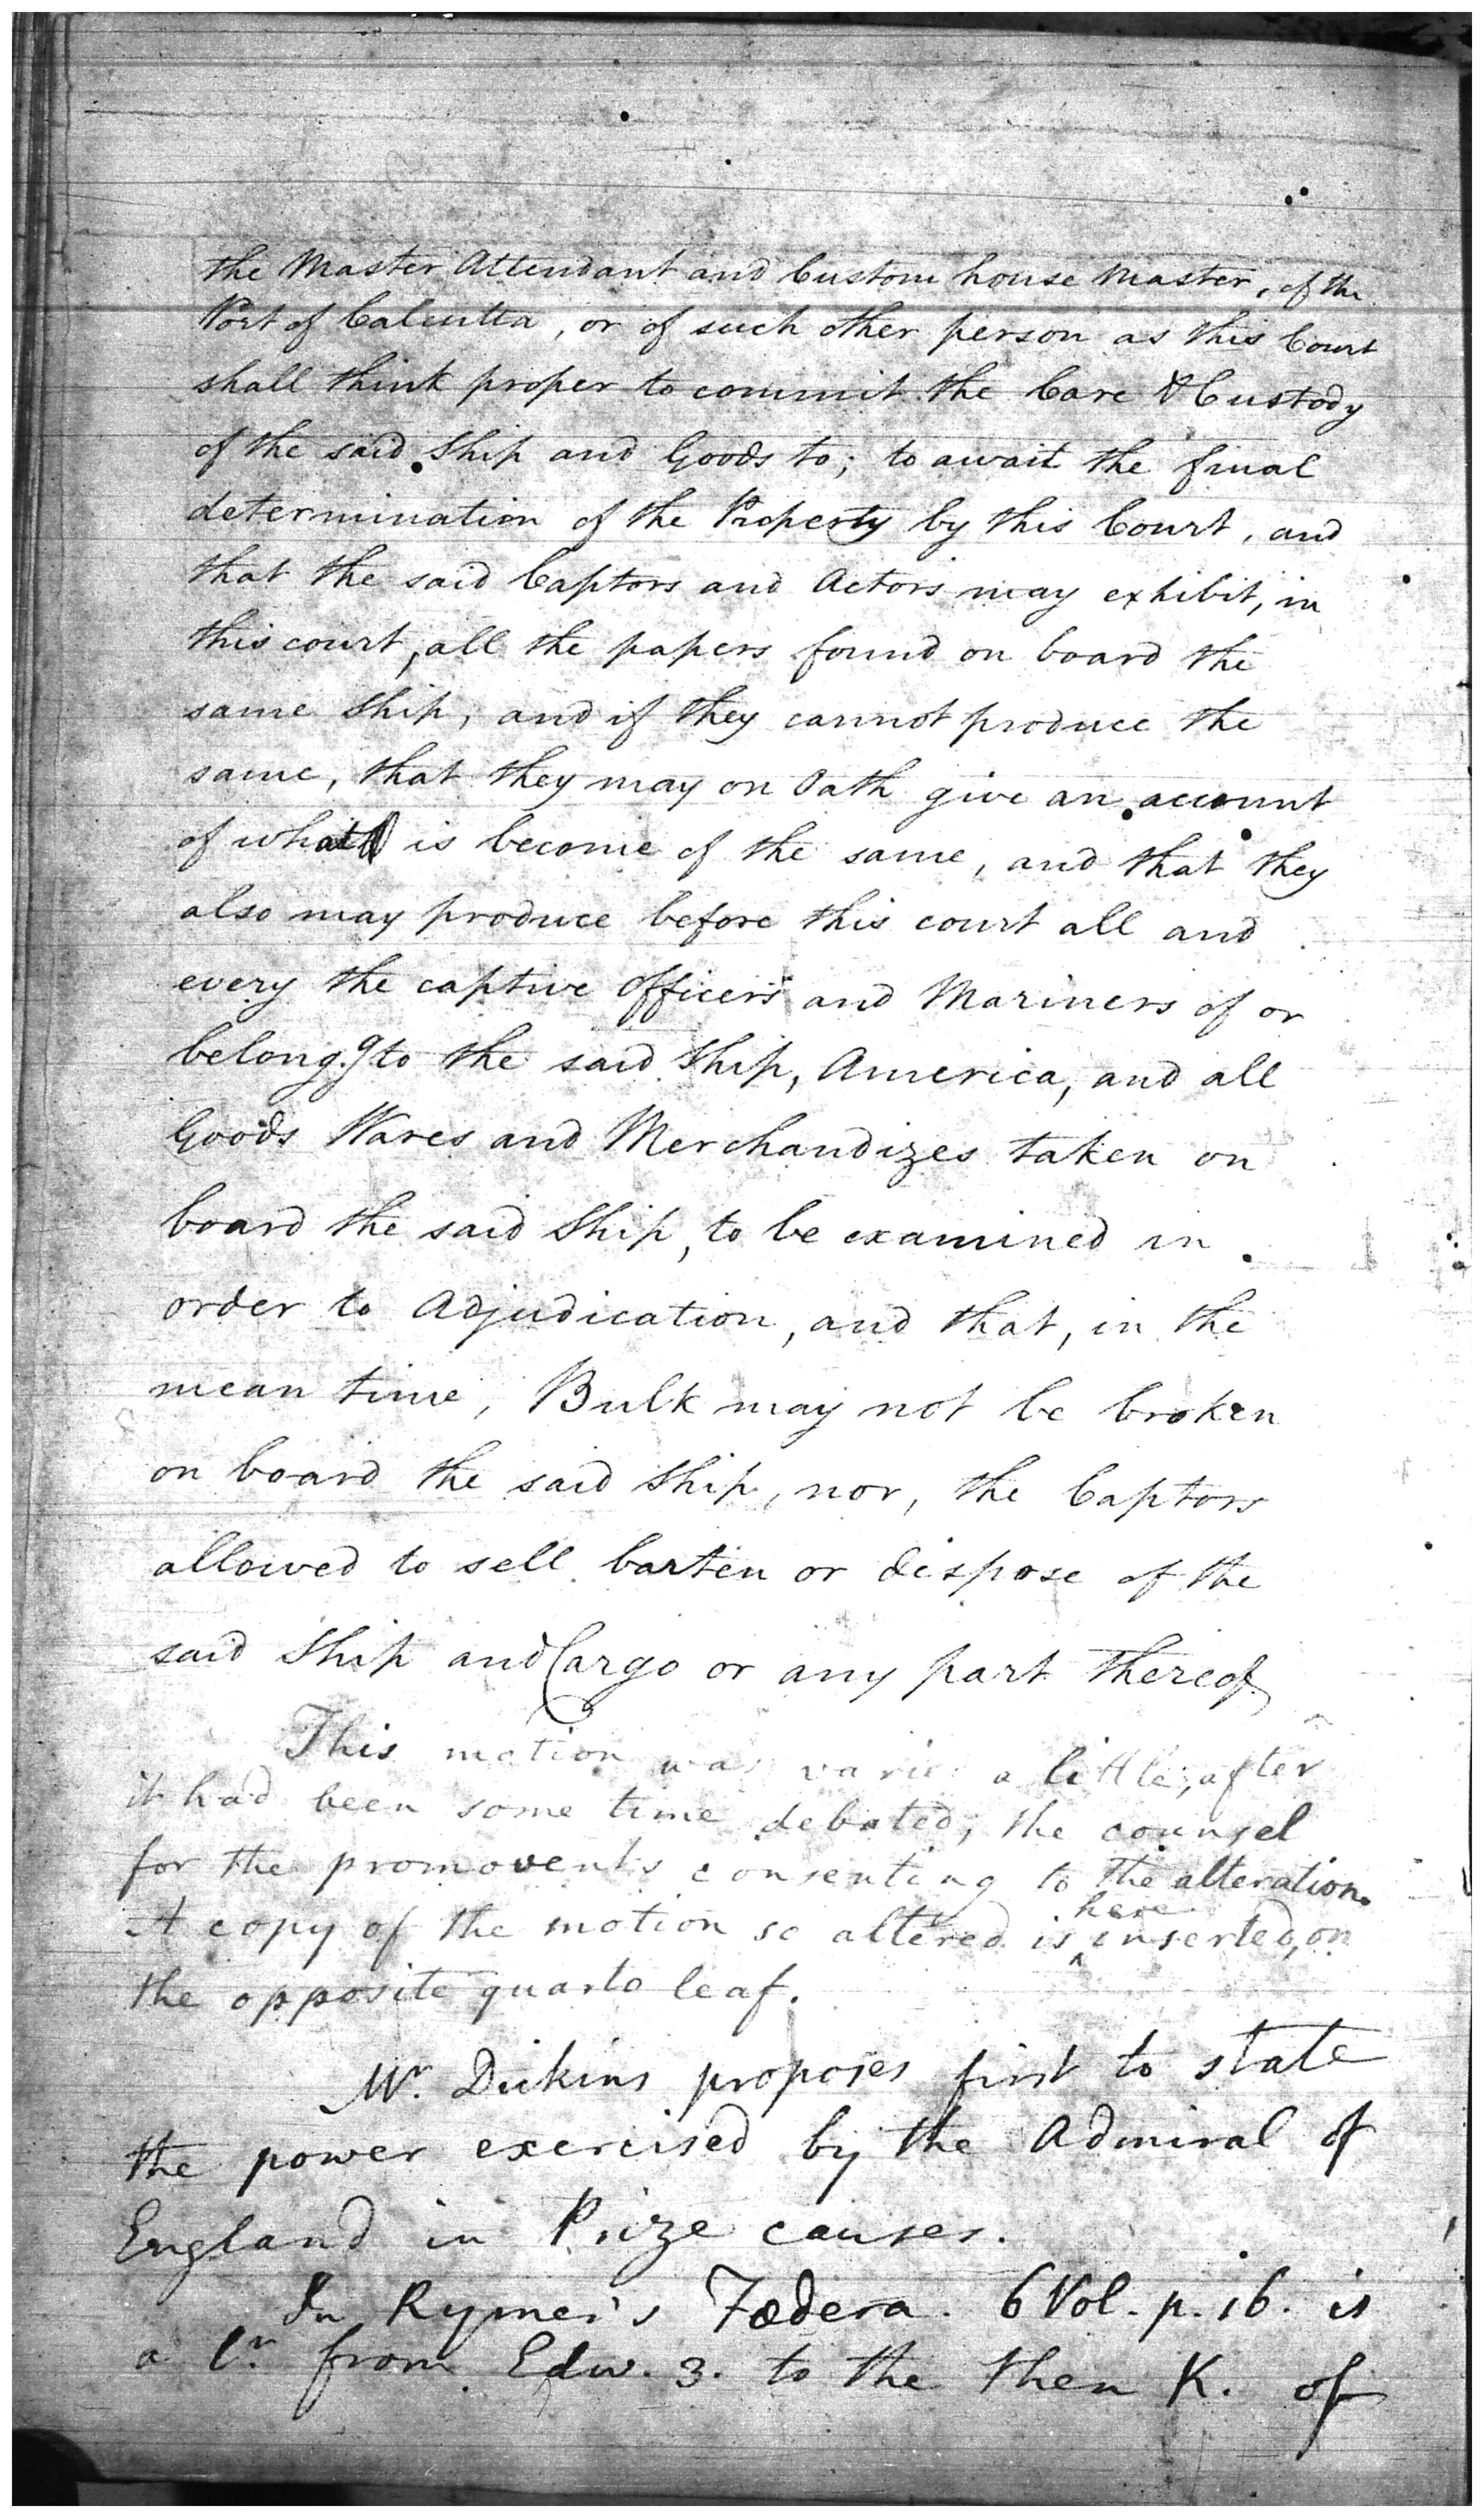 the Master Attendant and Custom house Master, of the
Port of Calcutta, or of such other person as this Court
shall think proper to commit the Care & Custody
of the said Ship and Goods to; to await the final
determination of the Property by this Court, and
that the said Captors and Actors may exhibit, in
this court, all the papers found on board the
same Ship, and if they cannot produce the
same, that they may on Oath give an account
of what is become of the same, and that they
also may produce before this court all and
every the captive Officers and Mariners of or
belong.g to the said Ship, America, and all
Goods Wares and Merchandizes taken on
board the said Ship, to be examined in
order to Adjudication, and that, in the
mean time, Bulk may not be broken
on board the said Ship, nor, the Captors
allowed to sell barten or dispose of the
said Ship and Cargo or any part thereof.
This motion was varied a little, after
it had been some time debated, the counsel
for the promovents consenting to the alteration.
A copy of the motion so altered is here inserted, on
the opposite quarto leaf.
Mr. Dickins proposes first to state
the power exercised by the Admiral of
England in Prize causes.
In Rymer's Fœdera. 6 Vol. p. 16. is
a lr. from Edw. 3. to the then K. of